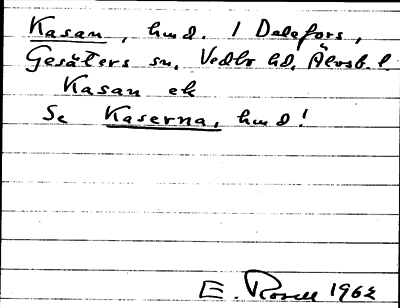 Kasan, hmd. 1 Dalefors,
Gesäters sn, Vedbo hd, Älvsb. l.
Kasan ek
Se Kaserna, hmd!
E. Rosell 1962